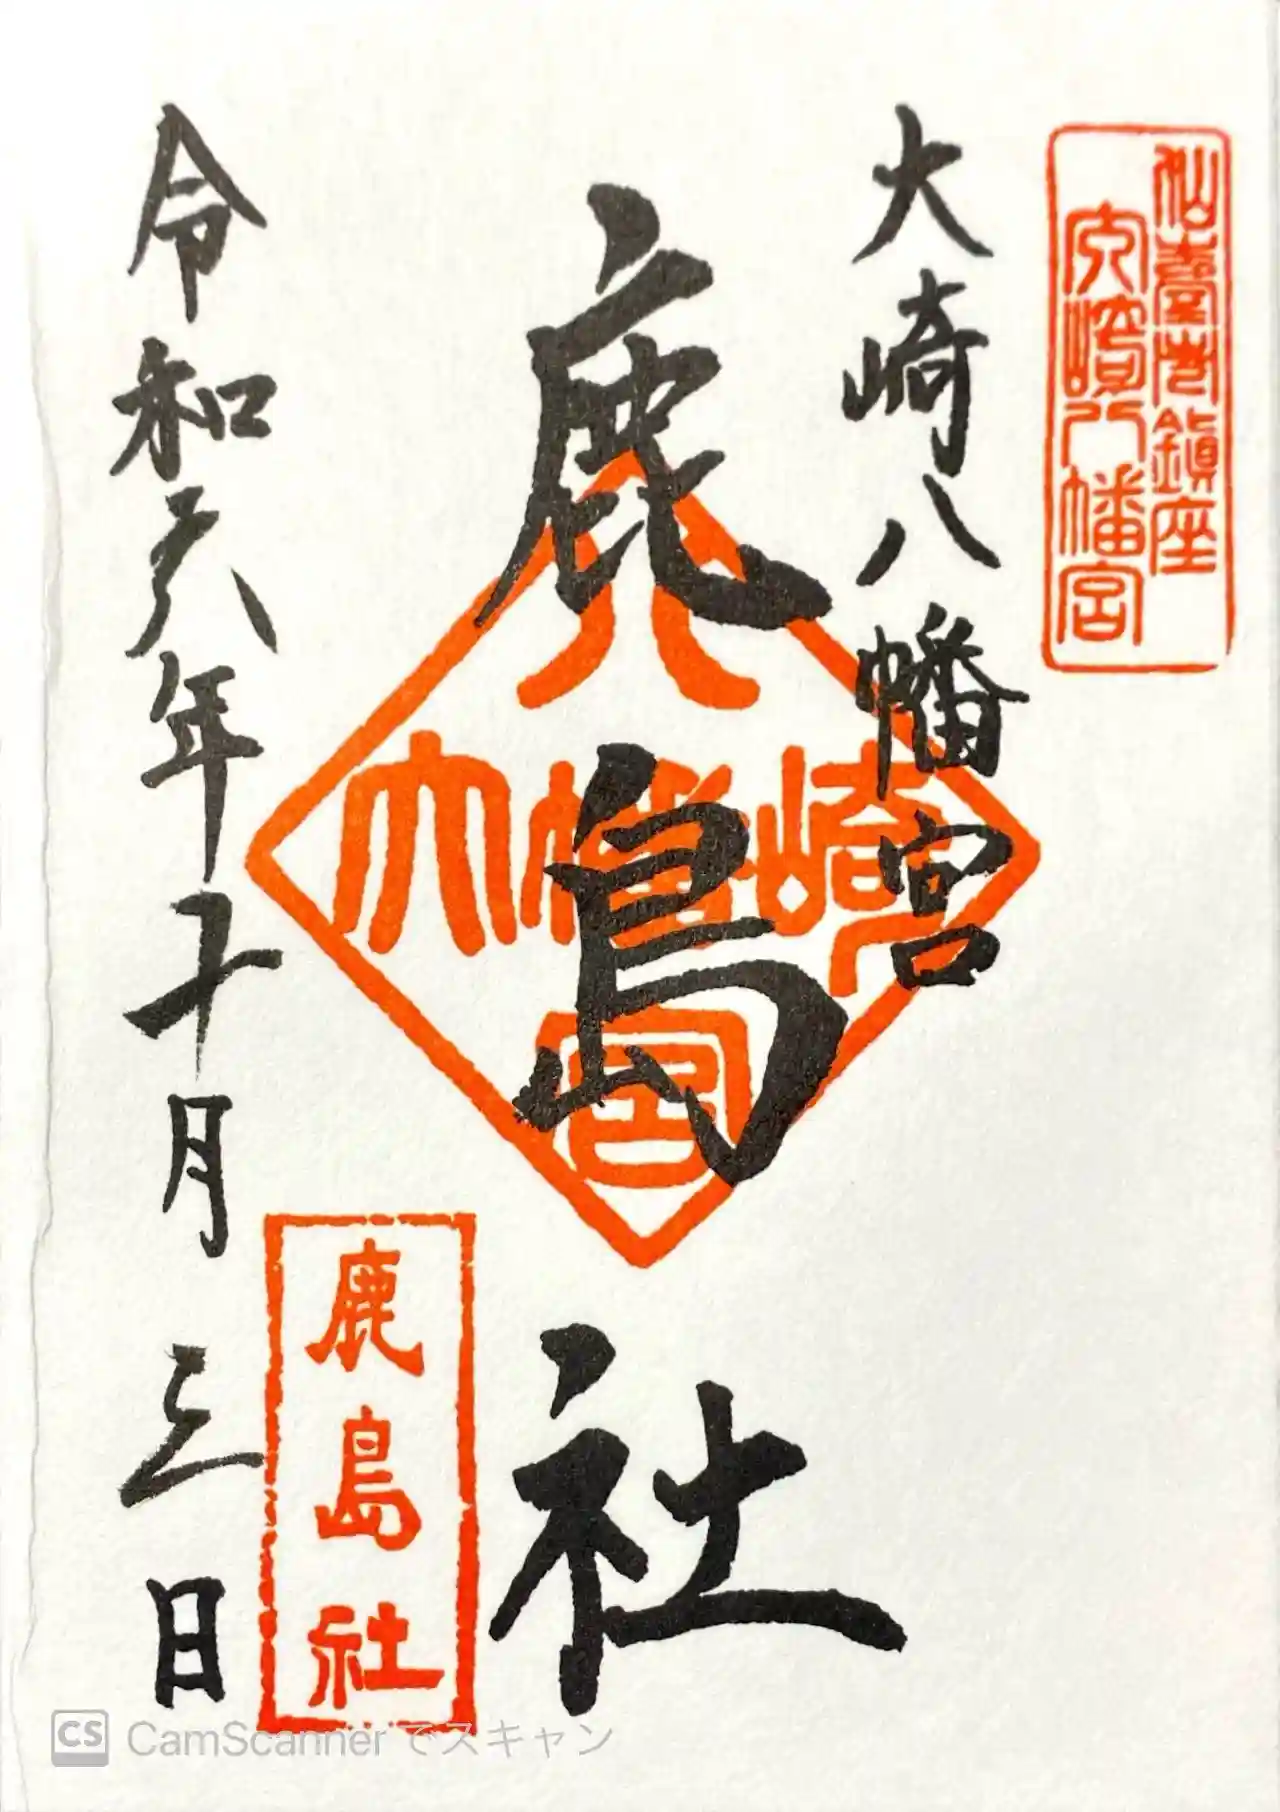 仙臺市鎮座
大崎八幡宮
大崎八幡宮
鹿島社
八
大幡崎
宮
令和六年十月三日
鹿島社
CS CamScannerでスキャン